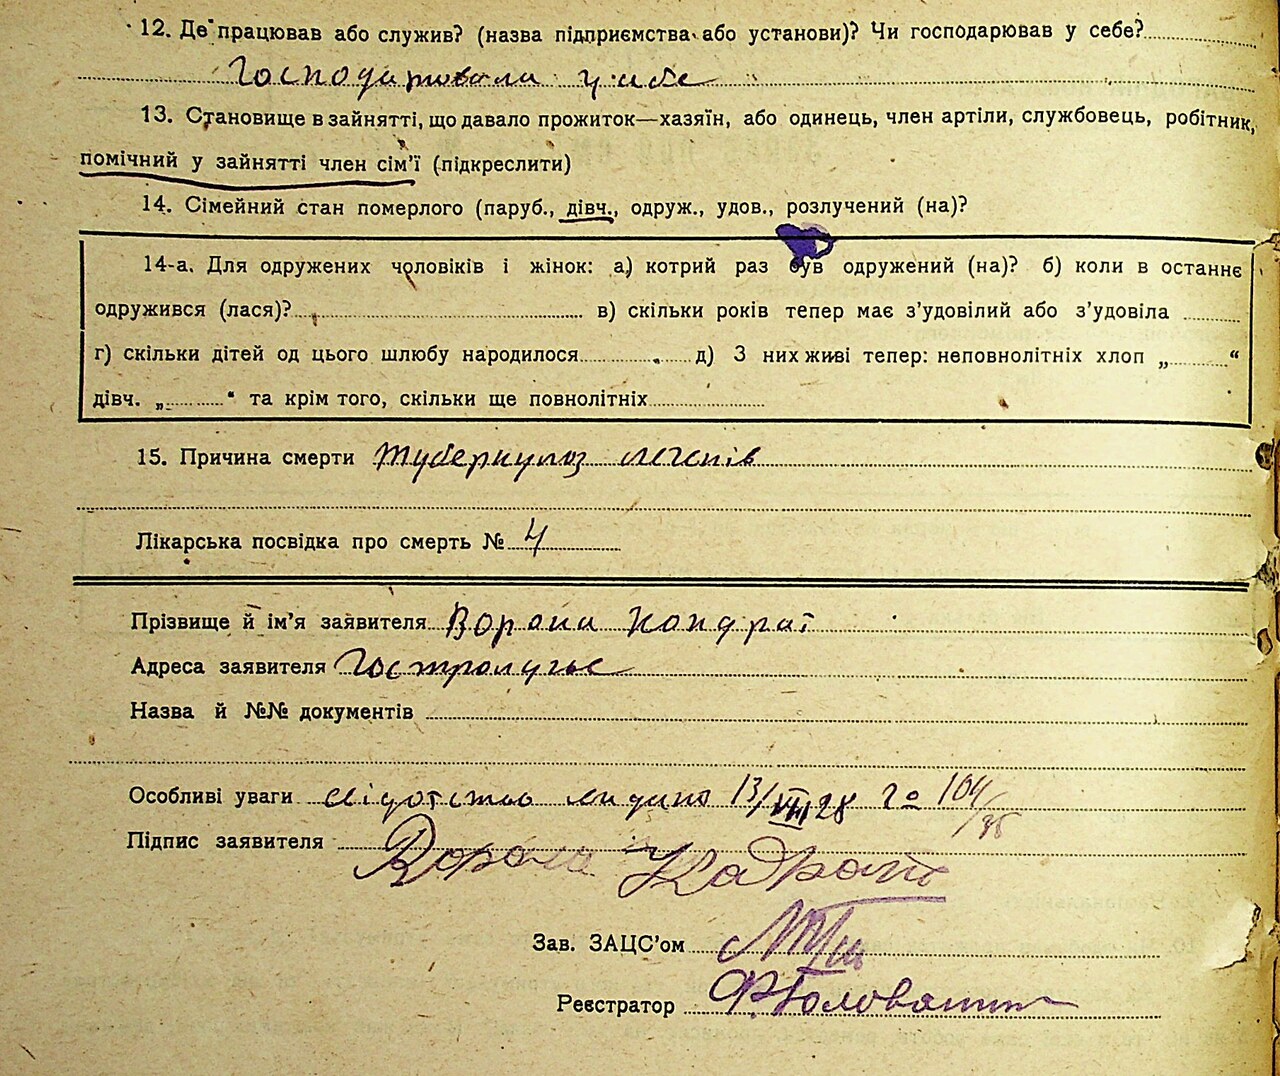 12. Де працював або служив? (назва підприємства або установи)? Чи господарював у себе?
Господарювала у себе
13. Становище в зайнятті, що давало прожиток—хазяїн, або одинець, член артіли, службовець, робітник,
помічний у зайнятті член сім’ї (підкреслити)
14. Сімейний стан померлого (паруб., дівч., одруж., удов., розлучений (на)?
14-а. Для одружених чоловіків і жінок: а) котрий раз був одружений (на)? б) коли в останнє
одружився (лася)? в) скільки років тепер має з’удовілий або з’удовіла
г) скільки дітей од цього шлюбу народилося д) З них живі тепер: неповнолітніх хлоп „ “
дівч. „ “ та крім того, скільки ще повнолітніх
15. Причина смерти Туберкульоз легенів
Лікарська посвідка про смерть № 4
Прізвище й ім’я заявителя Ворона Кондрат
Адреса заявителя Гостролуччє
Назва й №№ документів
Особливі уваги свідотство видано 13/VIII 28 104
Підпис заявителя Ворона
Зав. ЗАЦС’ом
Реєстратор